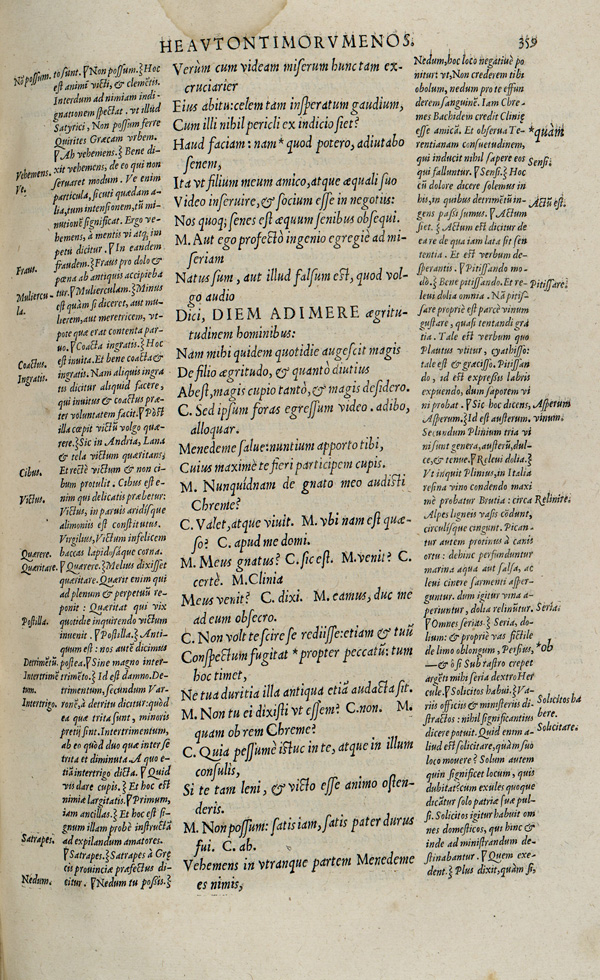 HEAVTONTIMORVMENOS. 359
Verùm cum videam miserum hunc tam ex-
cruciarier
Eius abitu: celem tam insperatum gaudium,
Cum illi nihil pericli ex indicio siet?
Haud faciam: nam * quod potero, adiutabo
senem,
Ita vt filium meum amico, atque æquali suo
Video inseruire, & socium esse in negotiis:
Nos quoq; senes est æquum senibus obsequi.
M. Aut ego profectò ingenio egregiè ad mi-
seriam
Natus sum, aut illud falsum est, quod vol-
go audio
Dici, DIEM ADIMERE ægritu-
tudinem hominibus:
Nam mihi quidem quotidie augescit magis
De filio ægritudo, & quantò diutius
Abest, magis cupio tantò, & magis desidero.
C. Sed ipsum foras egressum video. adibo,
alloquar.
Menedeme salue: nuntium apporto tibi,
Cuius maximè te fieri participem cupis.
M. Nunquidnam de gnato meo audisti
Chreme?
C. Valet, atque viuit. M. vbi nam est quæ-
so? C. apud me domi.
M. Meus gnatus? C. sic est. M. venit? C.
certè. M. Clinia
Meus venit? C. dixi. M. eamus, duc me
ad eum obsecro.
C. Non volt te scire se rediisse: etiam & tuū
Conspectum fugitat * propter peccatū: tum
hoc timet,
Ne tua duritia illa antiqua etiā adaucta sit.
M. Non tu ei dixisti vt essem? C. non. M.
quam ob rem Chreme?
C. Quia pessumè istuc in te, atque in illum
consulis,
Si te tam leni, & victo esse animo osten-
deris.
M. Non possum: satis iam, satis pater durus
fui. C. ah.
Vehemens in vtranque partem Menedeme
es nimis,
Nō possum.
Vehemens.
Ve.
Fraus.
Muliercu-
la.
Coactus.
Ingratis.
Cibus.
Victus.
Quærere.
Quæritare.
Postilla.
Intertrigo.
Satrapes.
Nedum.
to sunt. ⁋Non possum.⁆ Hoc
est animi victi, & clemētis.
Interdum ad nimiam indi-
gnationem spectat. vt illud
Satyrici, Non possum ferre
Quirites Græcam vrbem.
⁋Ah vehemens.⁆ Bene di-
xit vehemens, de eo qui non
seruaret modum. Ve enim
particula, sicuti quædam a-
lia, tum intensionem, tū mi-
nutionē significat. Ergo ve-
hemens, à mentis vi atq; im
petu dicitur. ⁋In eandem
fraudem.⁆ Fraus pro dolo &
pœna ab antiquis accipieba
tur. ⁋Mulierculam.⁆ Minus
est quàm si diceret, aut mu-
lierem, aut meretricem, vt-
pote quæ erat contenta par-
uo. ⁋Coacta ingratis.⁆ Hoc
est inuita. Et bene coacta &
ingratis. Nam aliquis ingra
tis dicitur aliquid facere,
qui inuitus & coactus præ-
ter voluntatem facit. ⁋Post
illa cœpit victū volgo quæ-
rere.⁆ Sic in Andria, Lana
& tela victum quæritans;
Et rectè victum & non ci-
bum protulit. Cibus est e-
nim quo delicatis præbetur:
Victus, in paruis aridisque
alimoniis est constitutus.
Virgilius, Victum infelicem
baccas lapidosáque corna.
⁋Quærere.⁆ Melius dixisset
quæritare. Quærit enim qui
ad plenum & perpetuū re-
ponit: Quæritat qui vix
quotidie inquirendo victum
inuenit. ⁋Postilla.⁆ Anti-
quum est: nos autē dicimus
postea. ⁋Sine magno inter-
trimēto.⁆ Id est damno. De-
trimentum, secundum Var-
ronē, à detritu dicitur: quòd
ea quæ trita sunt, minoris
pretij sint. Intertrimentum,
ab eo quòd duo quæ inter se
trita et diminuta. A quo e-
tiā intertrigo dicta. ⁋Quid
vis dare cupis.⁆ Et hoc est
nimiæ largitatis. ⁋Primum,
iam ancillas.⁆ Et hoc est si-
gnum illam probè instructā
ad expilandum amatores.
⁋Satrapes.⁆ Satrapes à Græ
cis prouinciæ præfectus di-
citur. ⁋Nedum tu possis.⁆
Nedum, hoc loco negatiuè po
nitur: vt, Non crederem tibi
obolum, nedum pro te effun
derem sanguinē. Iam Chre-
mes Bachidem credit Cliniæ
esse amicā. Et obserua Te-
rentianam consuetudinem,
qui inducit nihil sapere eos
qui falluntur. ⁋Sensi.⁆ Hoc
cū dolore dicere solemus in
his, in quibus detrimētū in-
gens passi sumus. ⁋Actum
siet.⁆ Actum est dicitur de
ea re de qua iam lata sit sen
tentia. Et est verbum de-
sperantis. ⁋Pitissando mo-
do.⁆ Bene pitissando. Et re-
leui dolia omnia. Nā pitis-
sare propriè est parcè vinum
gustare, quasi tentandi gra
tia. Tale est verbum quo
Plautus vtitur, cyathisso:
tale est & græcisso. Pitissan
do, id est expressis labris
expuendo, dum saporem vi
ni probat. ⁋Sic hoc dicens,
Asperum.⁆ Id est austerum.
Secundum Plinium tria vi
ni sunt genera, austerū, dul-
ce, & tenue. ⁋Releui dolia.⁆
Vt inquit Plimus, in Italia
resina vino condendo maxi
mè probatur Brutia: circa
Alpes ligneis vasis cōdunt,
circulisque cingunt. Pican-
tur autem protinus à canis
ortu: debinc perfunduntur
marina aqua aut salsa, ac
leui cinere sarmenti asper-
guntur. dum igitur vina a-
periuntur, dolia relinūtur.
⁋Omnes serias.⁆ Seria, do-
lium: & propriè vas fictile
de limo oblongum, Persius,
—& ô si Sub rastro crepet
argēti mihi seria dextro Her
cule. ⁋Solicitos habui.⁆ Va-
riis officiis & ministeriis di-
stractos: nihil significantius
dicere potuit. Quid enim a-
liud est solicitare, quàm suo
loco mouere? Solum autem
quin significet locum, quis
dubitat? cum exules quoque
dicātur solo patriæ suæ pul-
si. Solicitos igitur habuit om
nes domesticos, qui hinc &
inde ad ministrandum de-
stinabantur. ⁋Quem exe-
dent.⁆ Plus dixit, quàm si,
*quàm
Sensi.
Actū est.
Pitissare.
Asperum
vinum.
Relinire.
Seria.
*ob
Solicitos ha
bere.
Solicitare.